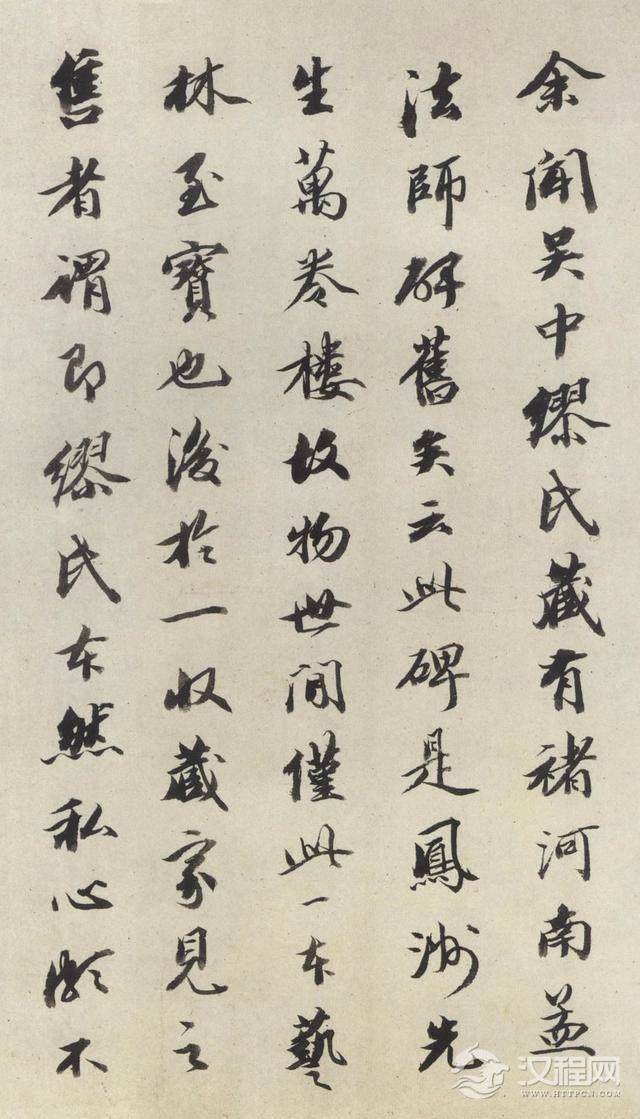 余聞吴中繆氏藏有褚河南孟
法師碑舊矣云此碑是鳳洲先
生萬卷樓故物世間僅此一本藝
林至寶也後於一收藏家見之
售者謂即繆氏本然私心頗不
汉程网
HTTPCN.COM